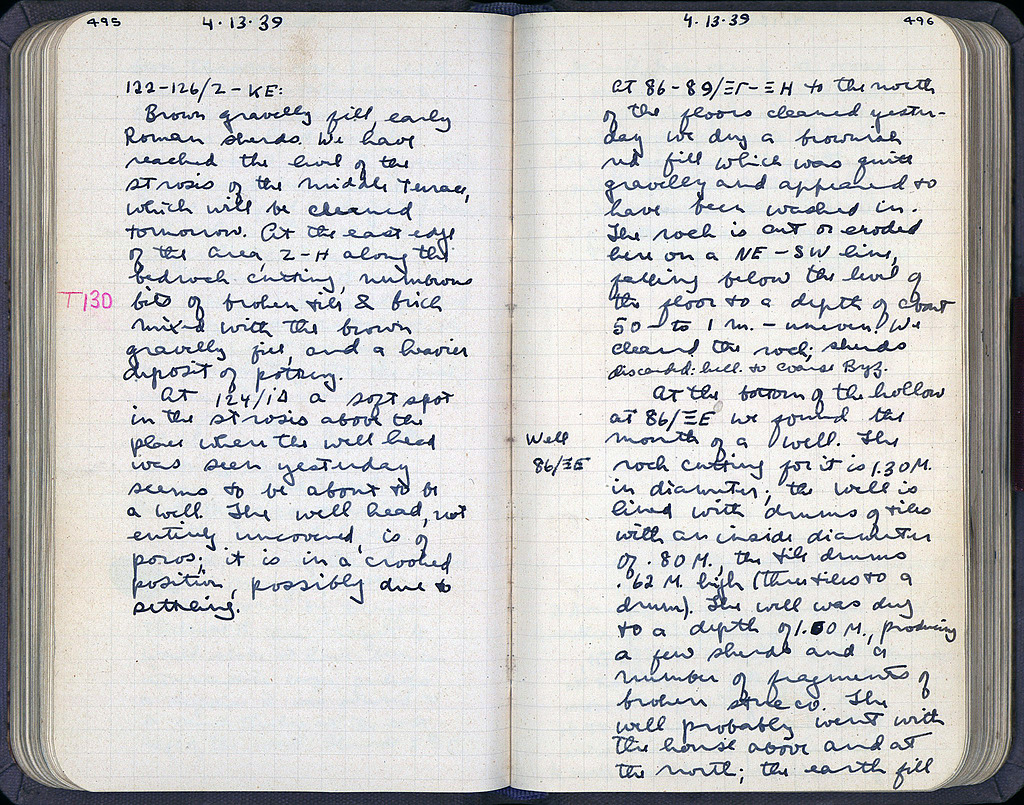 495
4·13·39
122-126/Z-KE:
Brown gravelly fill, early
Roman sherds. We have
reached the level of the
strosis of the middle Terrace,
which will be cleaned
tomorrow. At the east edge
of the area, Z-H along the
bedrock cutting, numerous
T130
bits of broken tile & brick
mixed with the brown
gravelly fill, and a heavier
deposit of pottery.
At 124/ a soft spot
in the strosis above the
place where the well head
was seen yesterday
seems to be about to be
a well. The well head, not
entirely uncovered, is of
poros; it is in a crooked
position, possibly due to
settling.
4·13·39
496
At 86-89/ΞΓ-ΞΗ to the north
of the floors cleaned yester-
day we dug a brownish
red fill which was quite
gravelly and appeared to
have been washed in.
The rock is cut or eroded
here on a NE-SW line,
falling below the level of
the floor to a depth of about
50 - to 1 m. - uneven. We
cleaned the rock; sherds
discarded: hell. to coarse Byz.
At the bottom of the hollow
at 86/ΞΕ we found the
Well
86/ΞΕ
mouth of a well. The
rock cutting for it is 1.30 M.
in diameter; the well is
lined with drums of tiles
with an inside diameter
of .80 M., the tile drums
.62 M. high (three tiles to a
drum). The well was dug
to a depth of M., producing
a few sherds and a
number of fragments of
broken stucco. The
well probably went with
the house above and at
the north; the earth fill